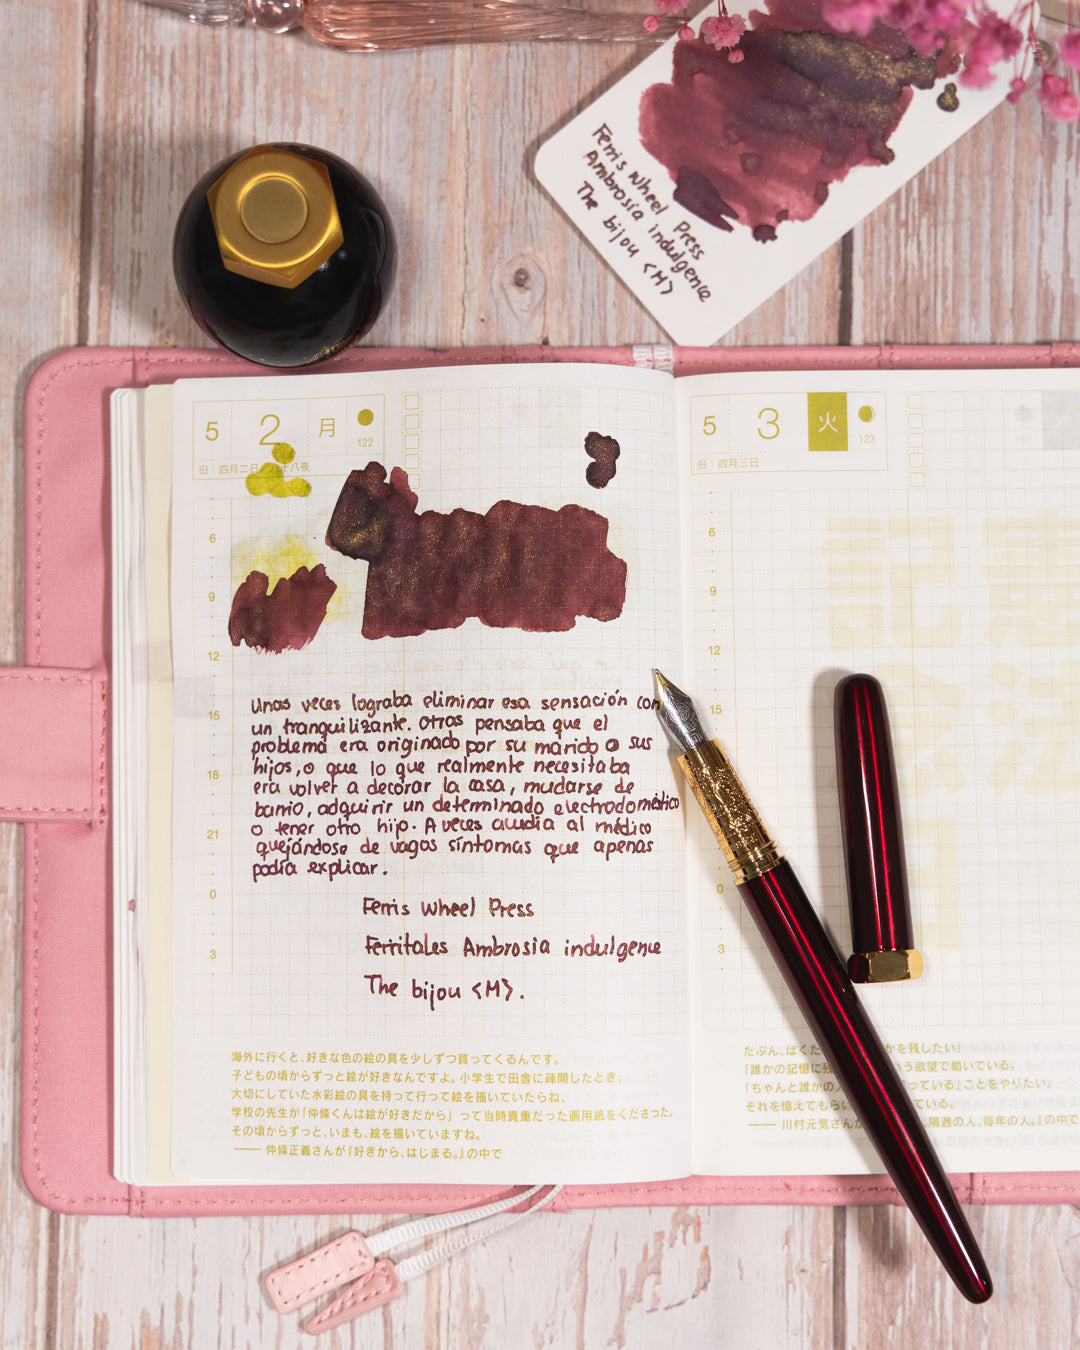 Ferris Wheel Press
Ambrosia indulgence
The bijou <M>
5 2 月
122
旧：四月二日 八十八夜
6
9
12
15
18
21
0
3
Unas veces lograba eliminar esa sensación con
un tranquilizante. Otras pensaba que el
problema era originado por su marido o sus
hijos, o que lo que realmente necesitaba
era volver a decorar la casa, mudarse de
barrio, adquirir un determinado electrodoméstico
o tener otro hijo. A veces acudía al médico
quejándose de vagos síntomas que apenas
podía explicar.
Ferris Wheel Press
Ferritales Ambrosia indulgence
The bijou <M>.
海外に行くと、好きな色の絵の具を少しずつ買ってくるんです。
子どもの頃からずっと絵が好きなんですよ。小学生で田舎に疎開したとき、
大切にしていた水彩絵の具を持って行って絵を描いていたらね、
学校の先生が「仲條くんは絵が好きだから」って当時貴重だった画用紙をくださった。
その頃からずっと、いまも、絵を描いていますね。
—— 仲條正義さんが『好きから、はじまる。』の中で
5 3 火
123
旧：四月三日
6
9
12
15
21
0
3
たぶん、ぼくた かを残したい」
「誰かの記憶に残 いう欲望で動いている。
「ちゃんと誰かの人 っている」ことをやりたい。
それを憶えてもらい ている。
—— 川村元気さんが 隔週の人、毎年の人。』の中で